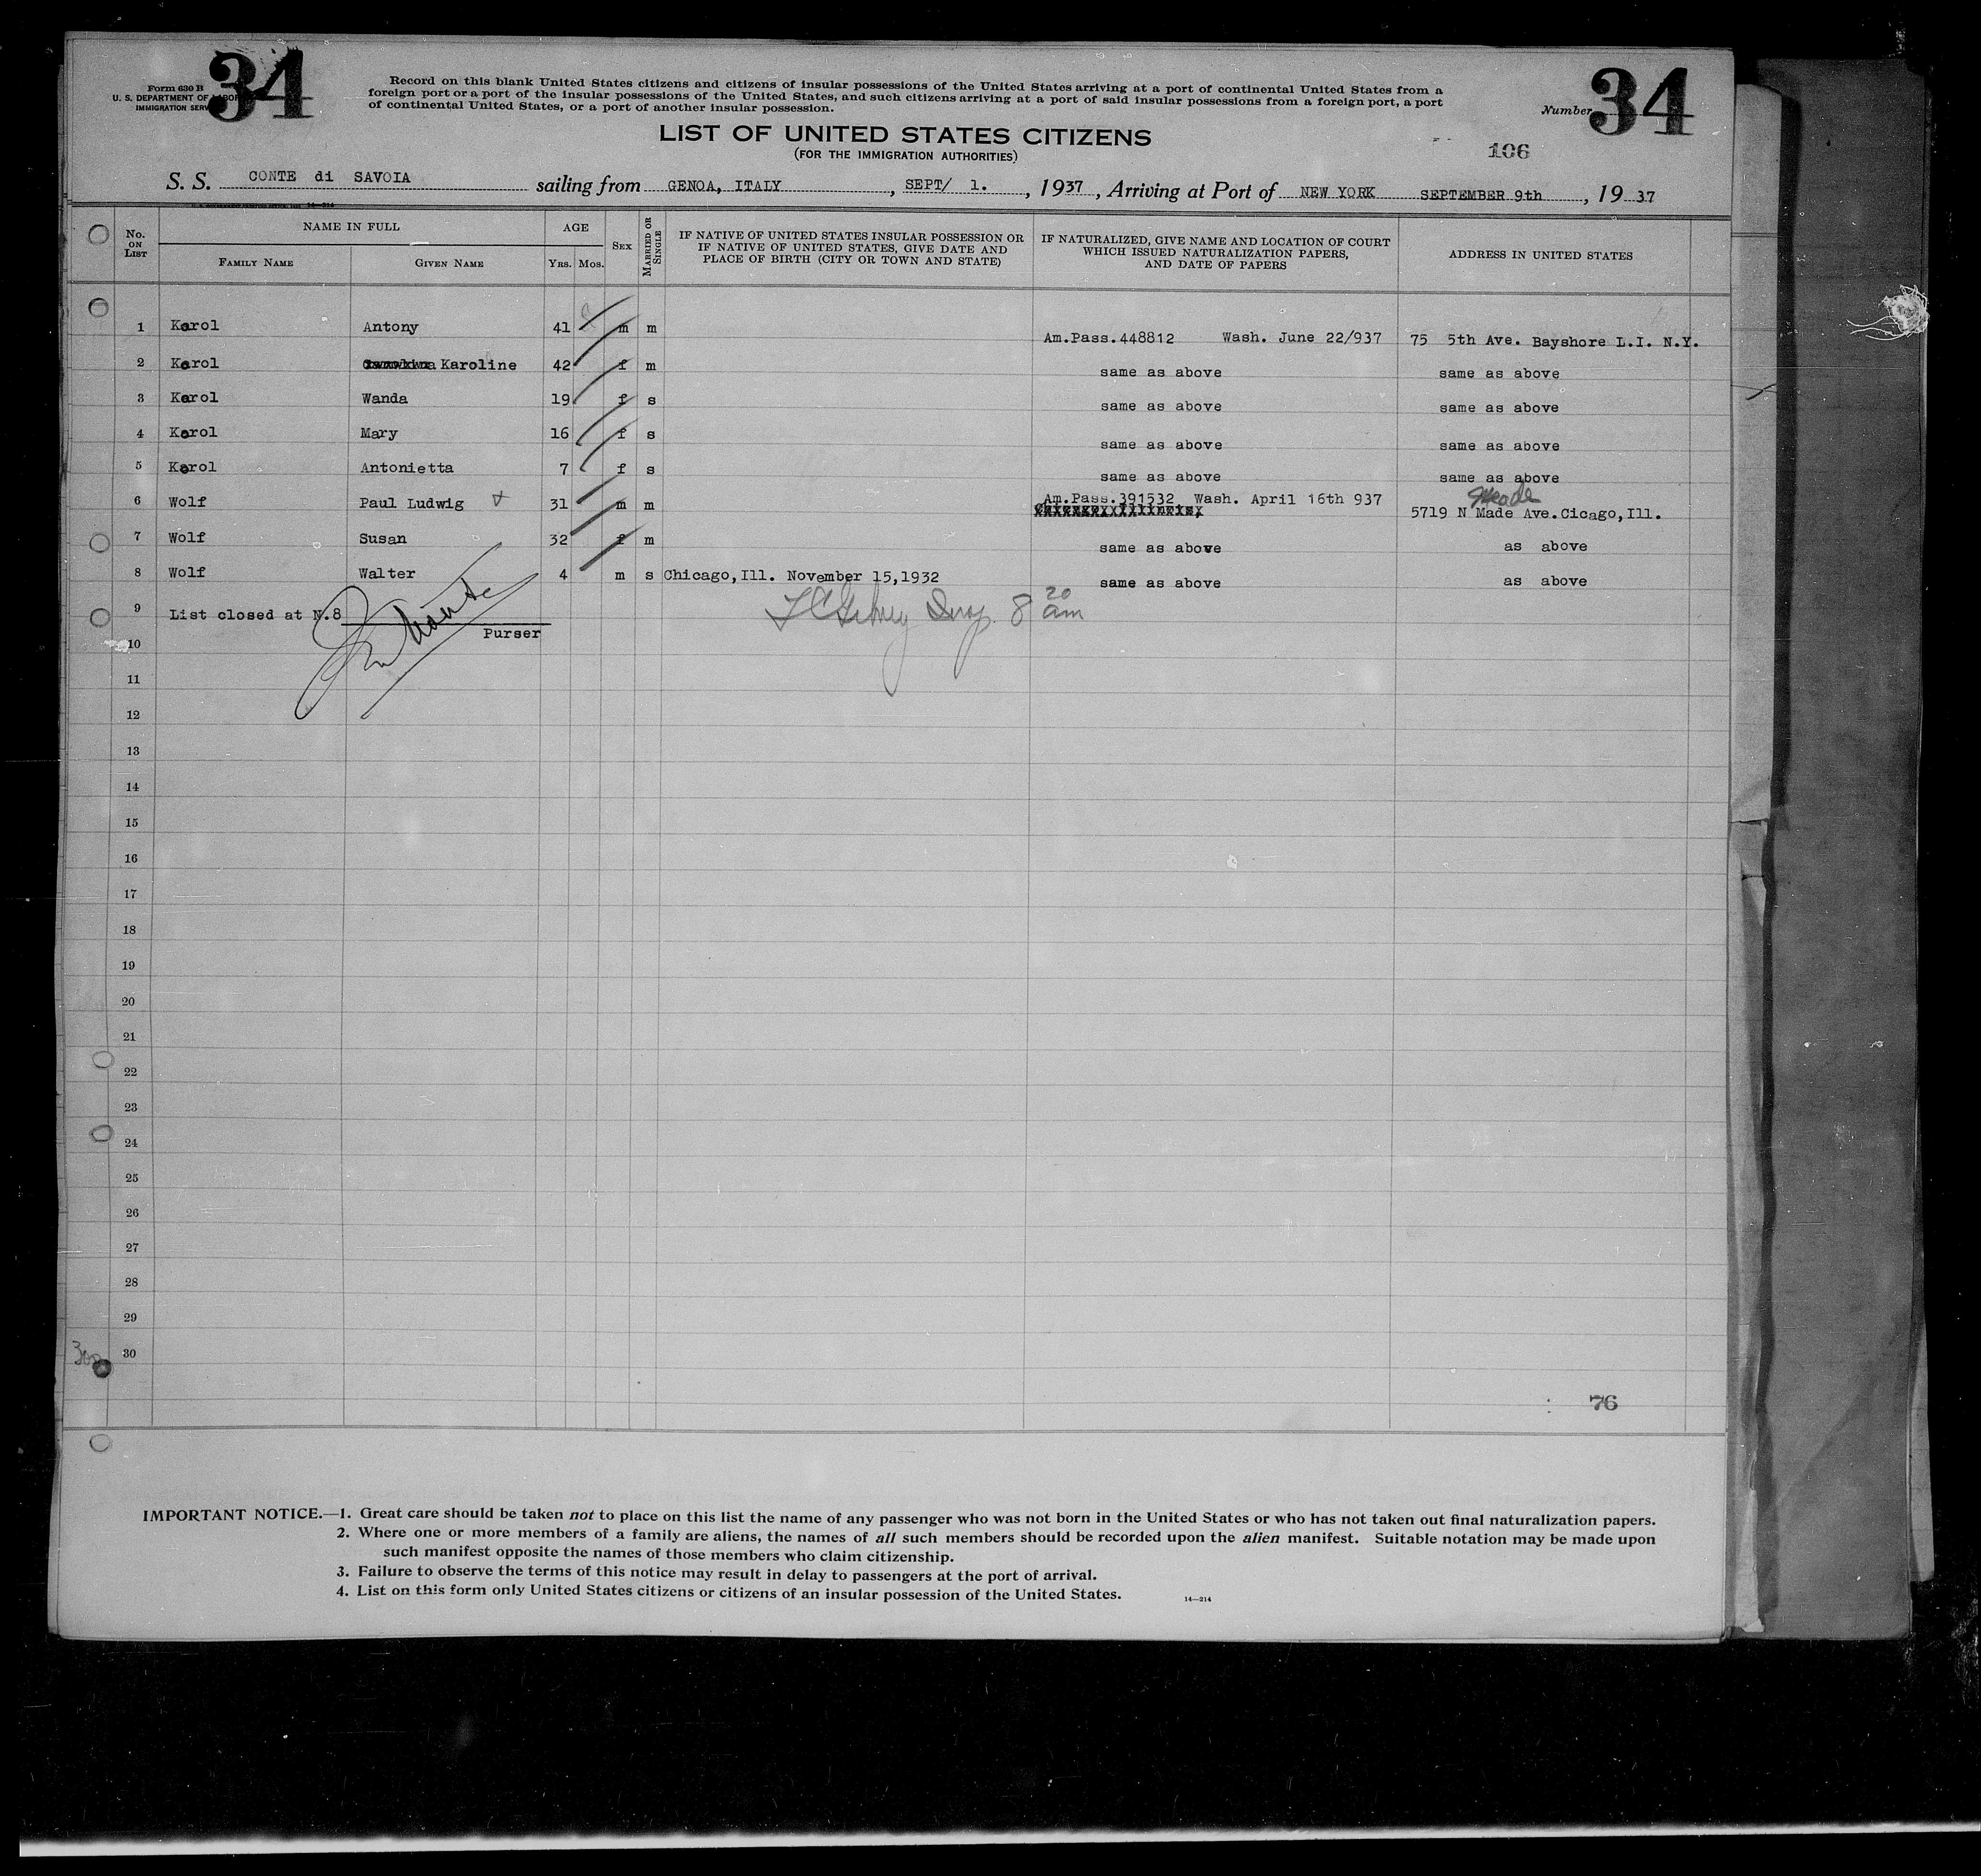 34
Form 630 B
U. S. DEPARTMENT OF LABOR
IMMIGRATION SERV
Record on this blank United States citizens and citizens of insular possessions of the United States arriving at a port of continental United States from a
foreign port or a port of the insular possessions of the United States, and such citizens arriving at a port of said insular possessions from a foreign port, a port
of continental United States, or a port of another insular possession.
Number 34
LIST OF UNITED STATES CITIZENS
(FOR THE IMMIGRATION AUTHORITIES)
106
S. S. CONTE di SAVOIA sailing from GENOA, ITALY, SEPT/ 1., 1937, Arriving at Port of NEW YORK SEPTEMBER 9th, 1937
14—214
No. ON LIST
NAME IN FULL
FAMILY NAME GIVEN NAME
AGE
YRS. MOS.
SEX
MARRIED OR SINGLE
IF NATIVE OF UNITED STATES INSULAR POSSESSION OR
IF NATIVE OF UNITED STATES, GIVE DATE AND
PLACE OF BIRTH (CITY OR TOWN AND STATE)
IF NATURALIZED, GIVE NAME AND LOCATION OF COURT
WHICH ISSUED NATURALIZATION PAPERS,
AND DATE OF PAPERS
ADDRESS IN UNITED STATES
1 Karol Antony 41 m m Am.Pass.448812 Wash. June 22/937 75 5th Ave. Bayshore L.I. N.Y.
2 Karol Karoline 42 f m same as above same as above
3 Karol Wanda 19 f s same as above same as above
4 Karol Mary 16 f s same as above same as above
5 Karol Antonietta 7 f s same as above same as above
Meade
6 Wolf Paul Ludwig 31 m m Am.Pass.391532 Wash. April 16th 937 5719 N Made Ave.Cicago,Ill.
7 Wolf Susan 32 f m same as above as above
8 Wolf Walter 4 m s Chicago,Ill. November 15,1932 same as above as above
9 List closed at N.8
Purser
8 20 am
10
11
12
13
14
15
16
17
18
19
20
21
22
23
24
25
26
27
28
29
30
76
IMPORTANT NOTICE.—1. Great care should be taken not to place on this list the name of any passenger who was not born in the United States or who has not taken out final naturalization papers.
2. Where one or more members of a family are aliens, the names of all such members should be recorded upon the alien manifest. Suitable notation may be made upon
such manifest opposite the names of those members who claim citizenship.
3. Failure to observe the terms of this notice may result in delay to passengers at the port of arrival.
4. List on this form only United States citizens or citizens of an insular possession of the United States.
14—214